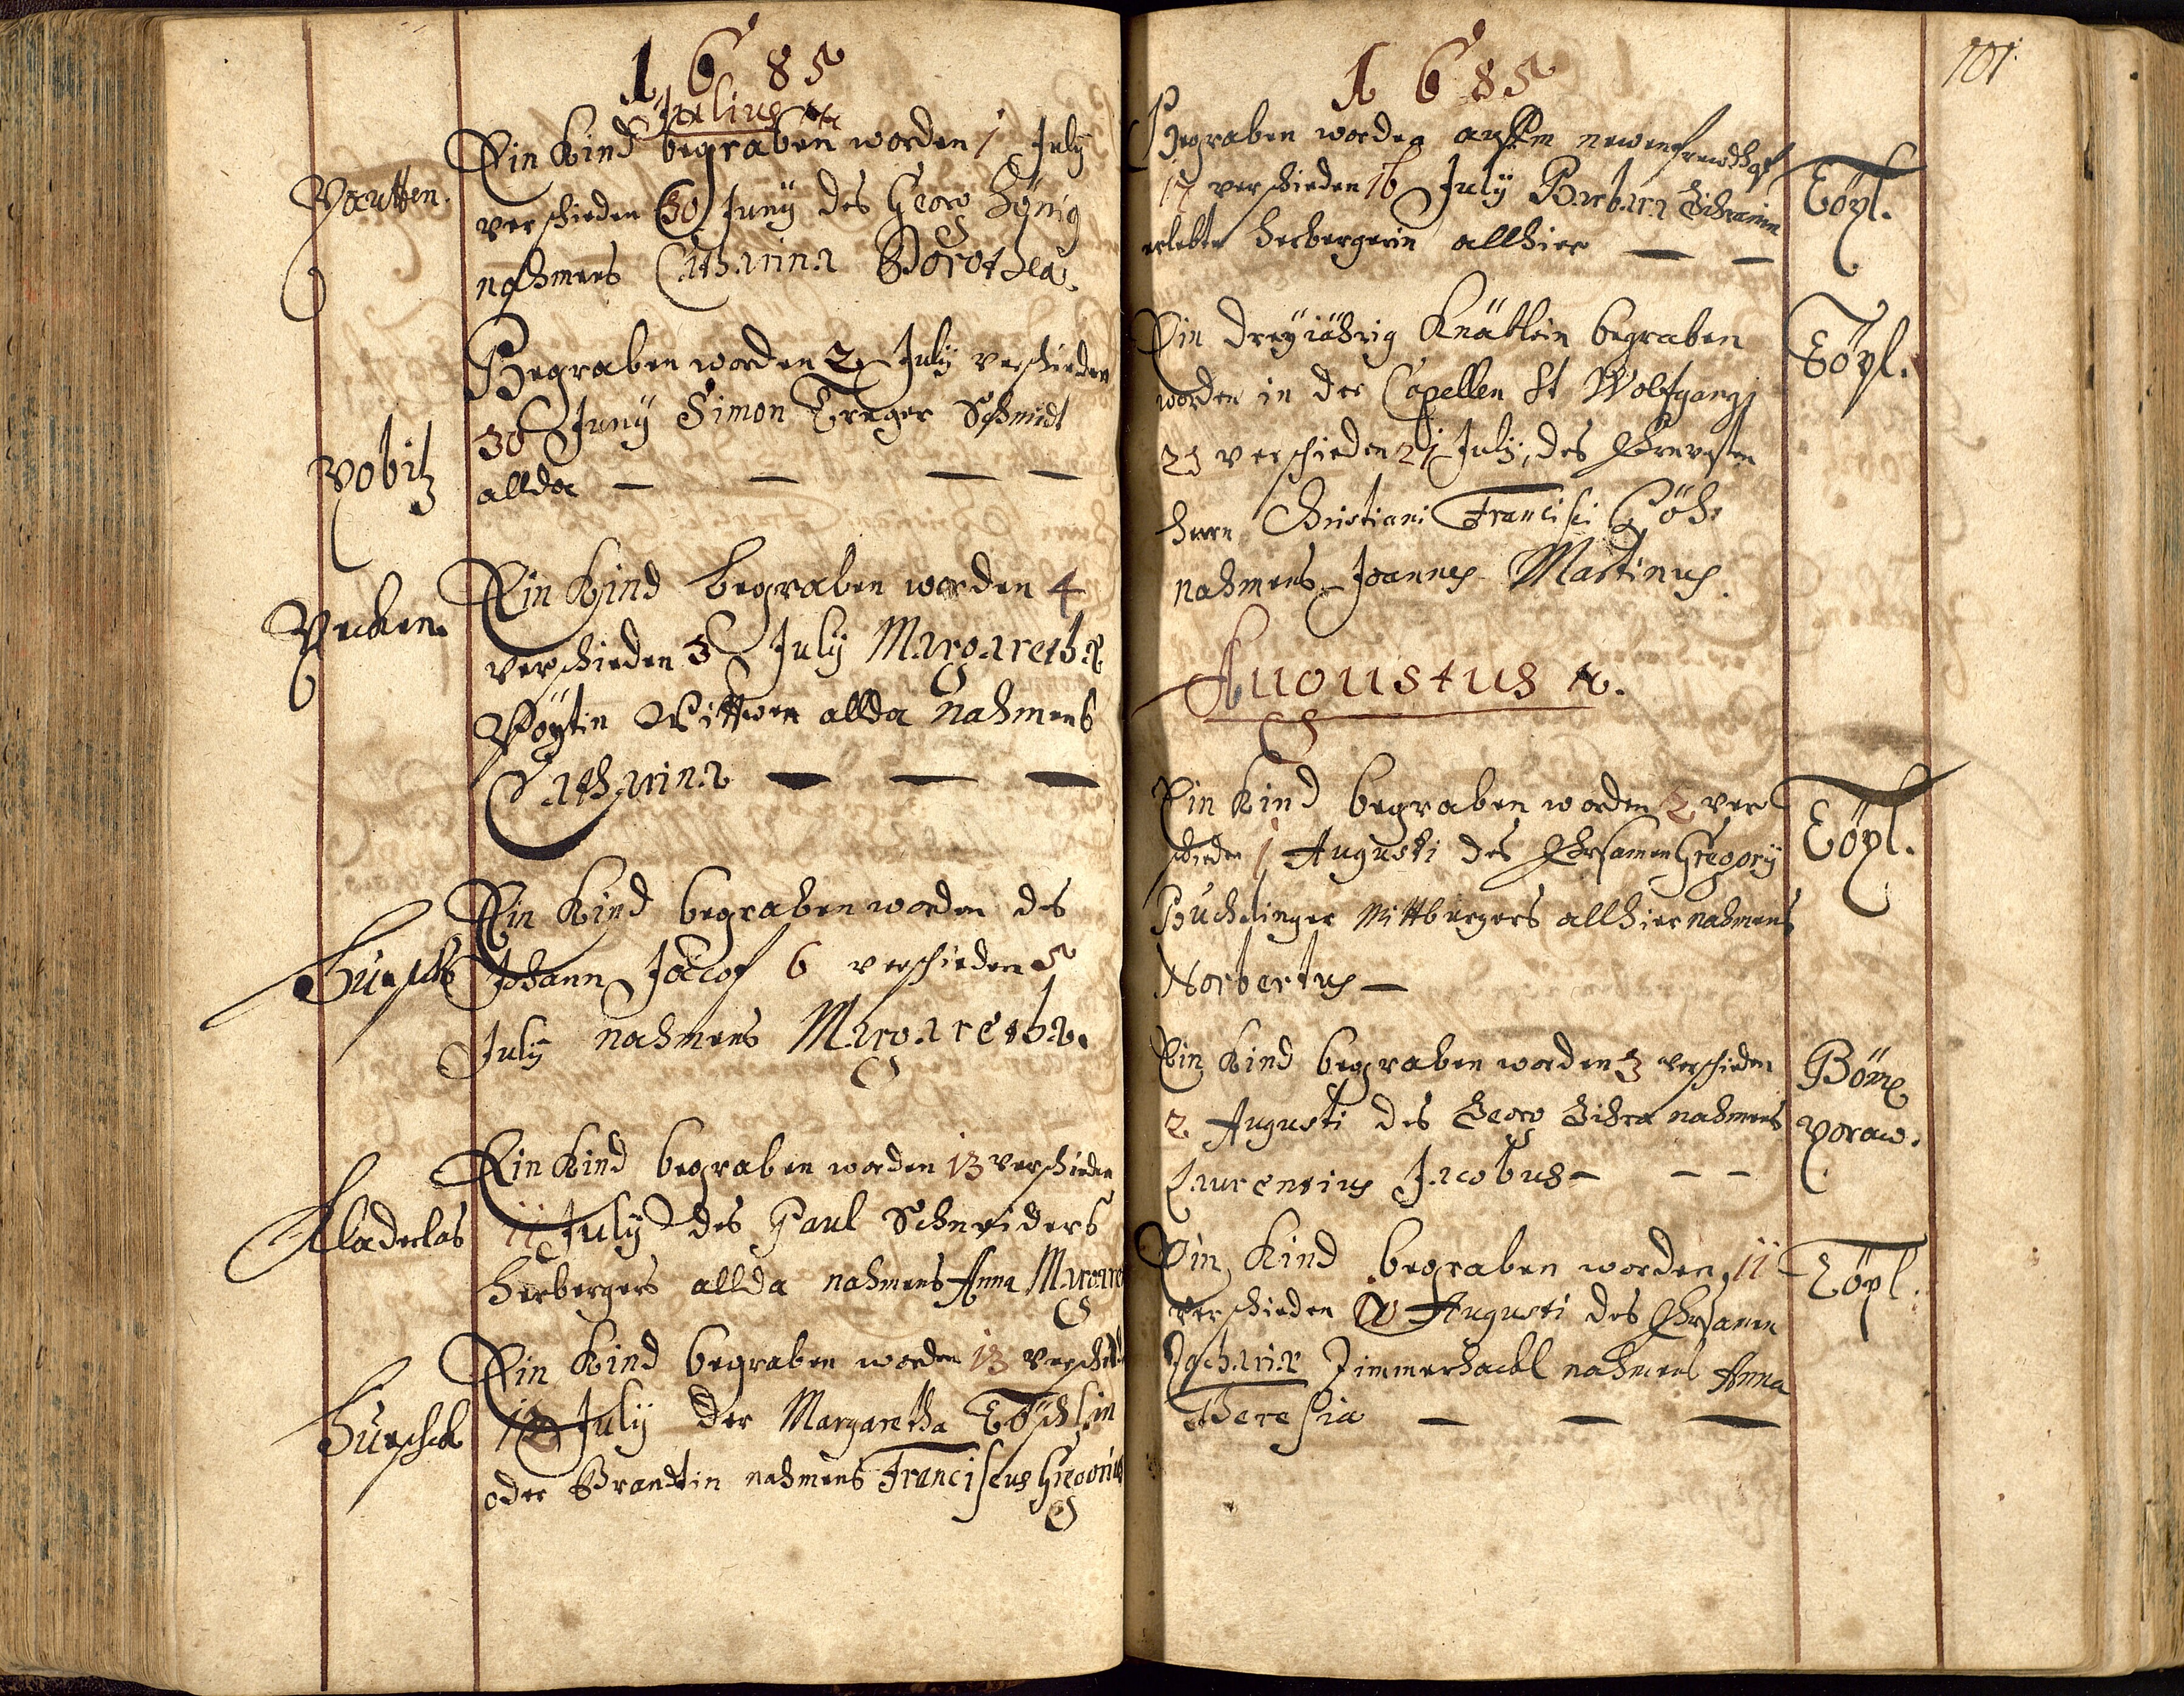 1685
Julius
Ein Kind begraben worden 1 July
verschieden 30 Juny des Georg König
nahmens Catharina Dorothea.
Begraben worden 2 July verschieden
30 Juny Simon Treger Schmidt
Pobitz
allda — — — —
Ein Kind begraben worden 4
verschieden 3 July Margaretha
Wittwen allda nahmens
Catharina — — —
Ein Kind begraben worden des
Johann Jacob 6 verschieden 5
July nahmens Margaretha.
Ein Kind begraben worden 13 verschieden
Hladerlas
11 July des Paul Schneiders
Herbergers allda nahmens Anna Margare
Ein Kind begraben worden 13 verschied
12 July der Margaretha Töschlin
oder Brandtin nahmens Franciscus Gregorius
101.
1685
Begraben worden auffm newen frewdthof
Töpl.
17 verschieden 16 July Barbara
erlebte Herbergerin allhier — —
Ein dreyjährig Knäblein begraben
Töpl.
worden in der Capellen St Wolfgangi
23 verschieden 21 July, des Ehrnvesten
Herrn Christiani Francisci
nahmens Joannes Martinus.
Augustus
Ein Kind begraben worden 2 ver
Töpl.
schieden 1 Augusti des Ehrsamen Gregorÿ
Puchelinger Mittburgers allhier nahmens
Norbertus —
Ein Kind begraben worden 3 verschieden
2 Augusti des Georg nahmens
Laurentius Jacobus — — —
Ein Kind begraben worden 11
Töpl.
verschieden Augusti des Ehrsamen
Zacharia Zimmerhackl nahmens Anna
Theresia — — —